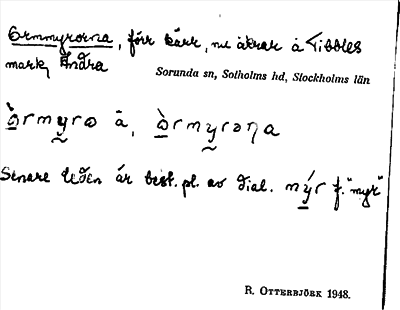 Ormmyrorna, förr kärr, nu åkrar å Tibbles
mark, Andra
Sorunda sn, Sotholms hd, Stockholms län
òrmyrə ä, òrmyrəɳa
Senare leden är best. pl. av dial. mýr f. "myr"
R. Otterbjörk 1948.